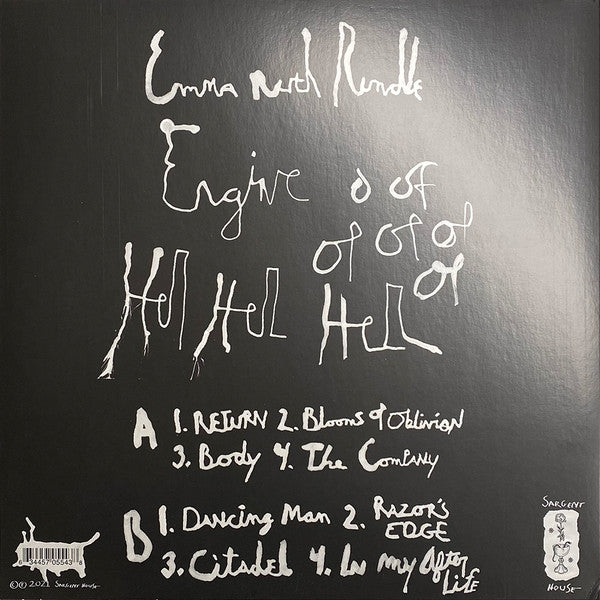 Emma Ruth Rundle
Engine o of
of of of
of
Hel Hel Hell
A 1. RETURN 2. Blooms of Oblivion
3. Body 4. The Company
B 1. Dancing Man 2. RAZOR'S
EDGE
3. Citadel 4. In my After
Life
SARGENT
HOUSE
6 34457 05543 8
©℗ 2021 SARGENT HOUSE